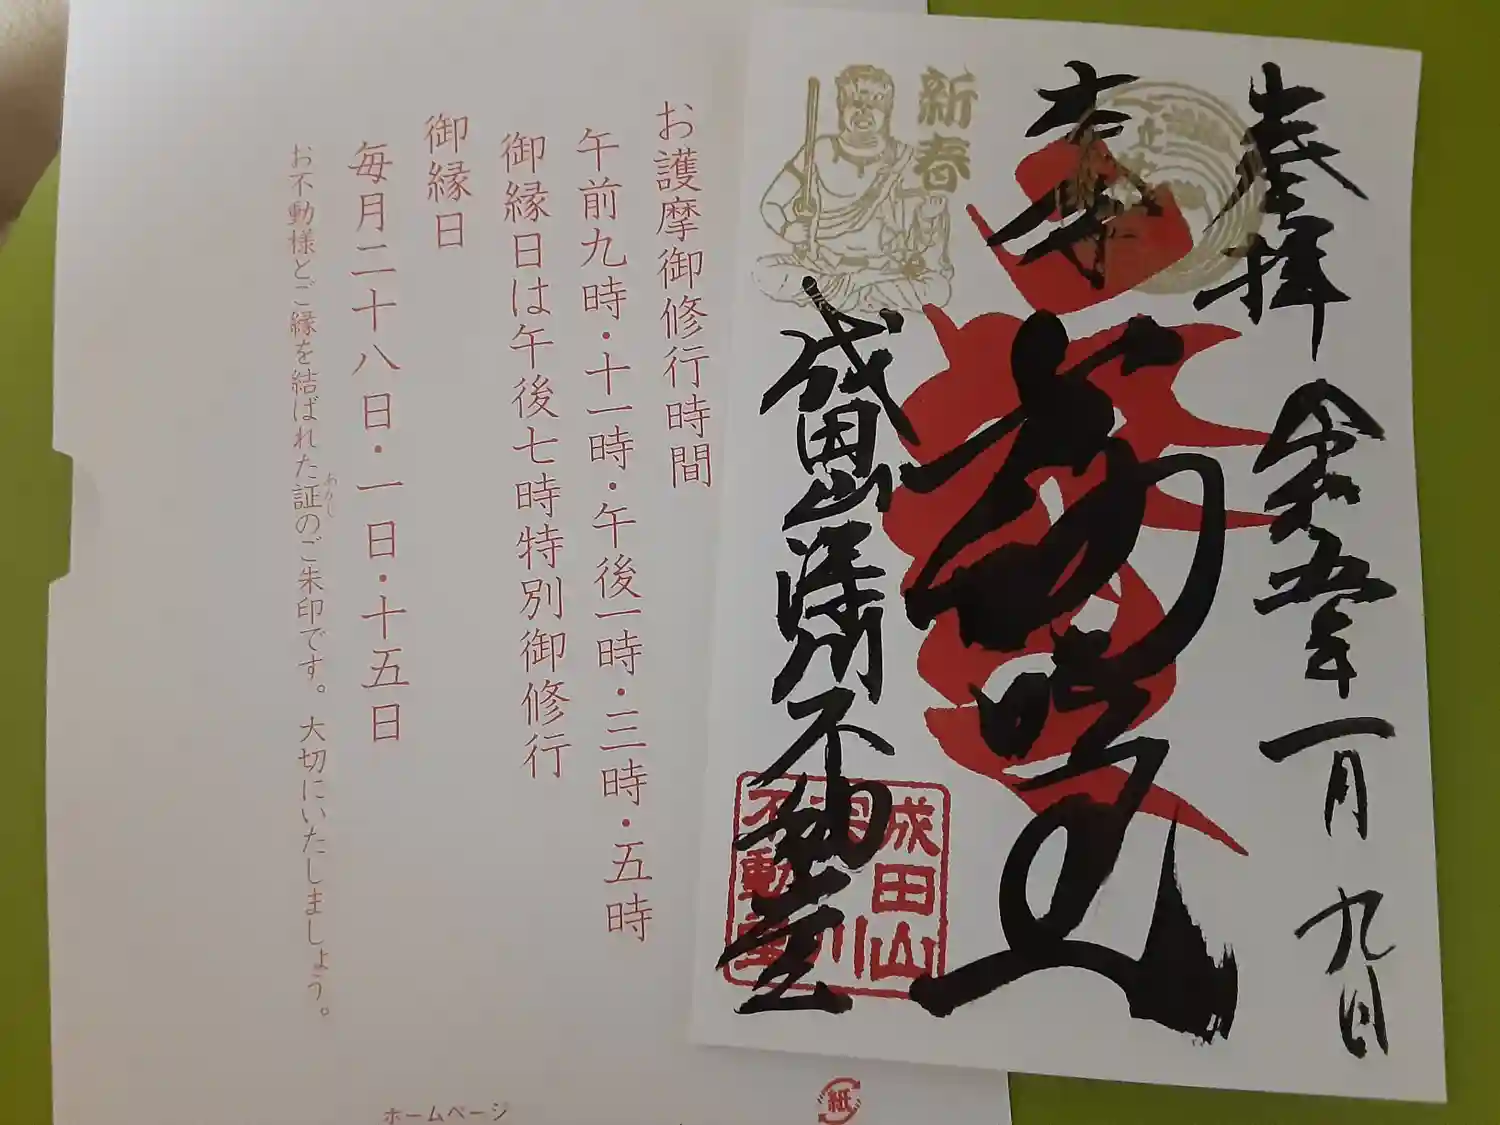 奉拝
令和五年一月九日
本尊
成田山深川不動堂
新春
成田山
深川
不動堂
お護摩御修行時間
午前九時・十一時・午後一時・三時・五時
御縁日は午後七時特別御修行
御縁日
毎月二十八日・一日・十五日
お不動様とご縁を結ばれた証のご朱印です。大切にいたしましょう。
あかし
ホームページ
紙